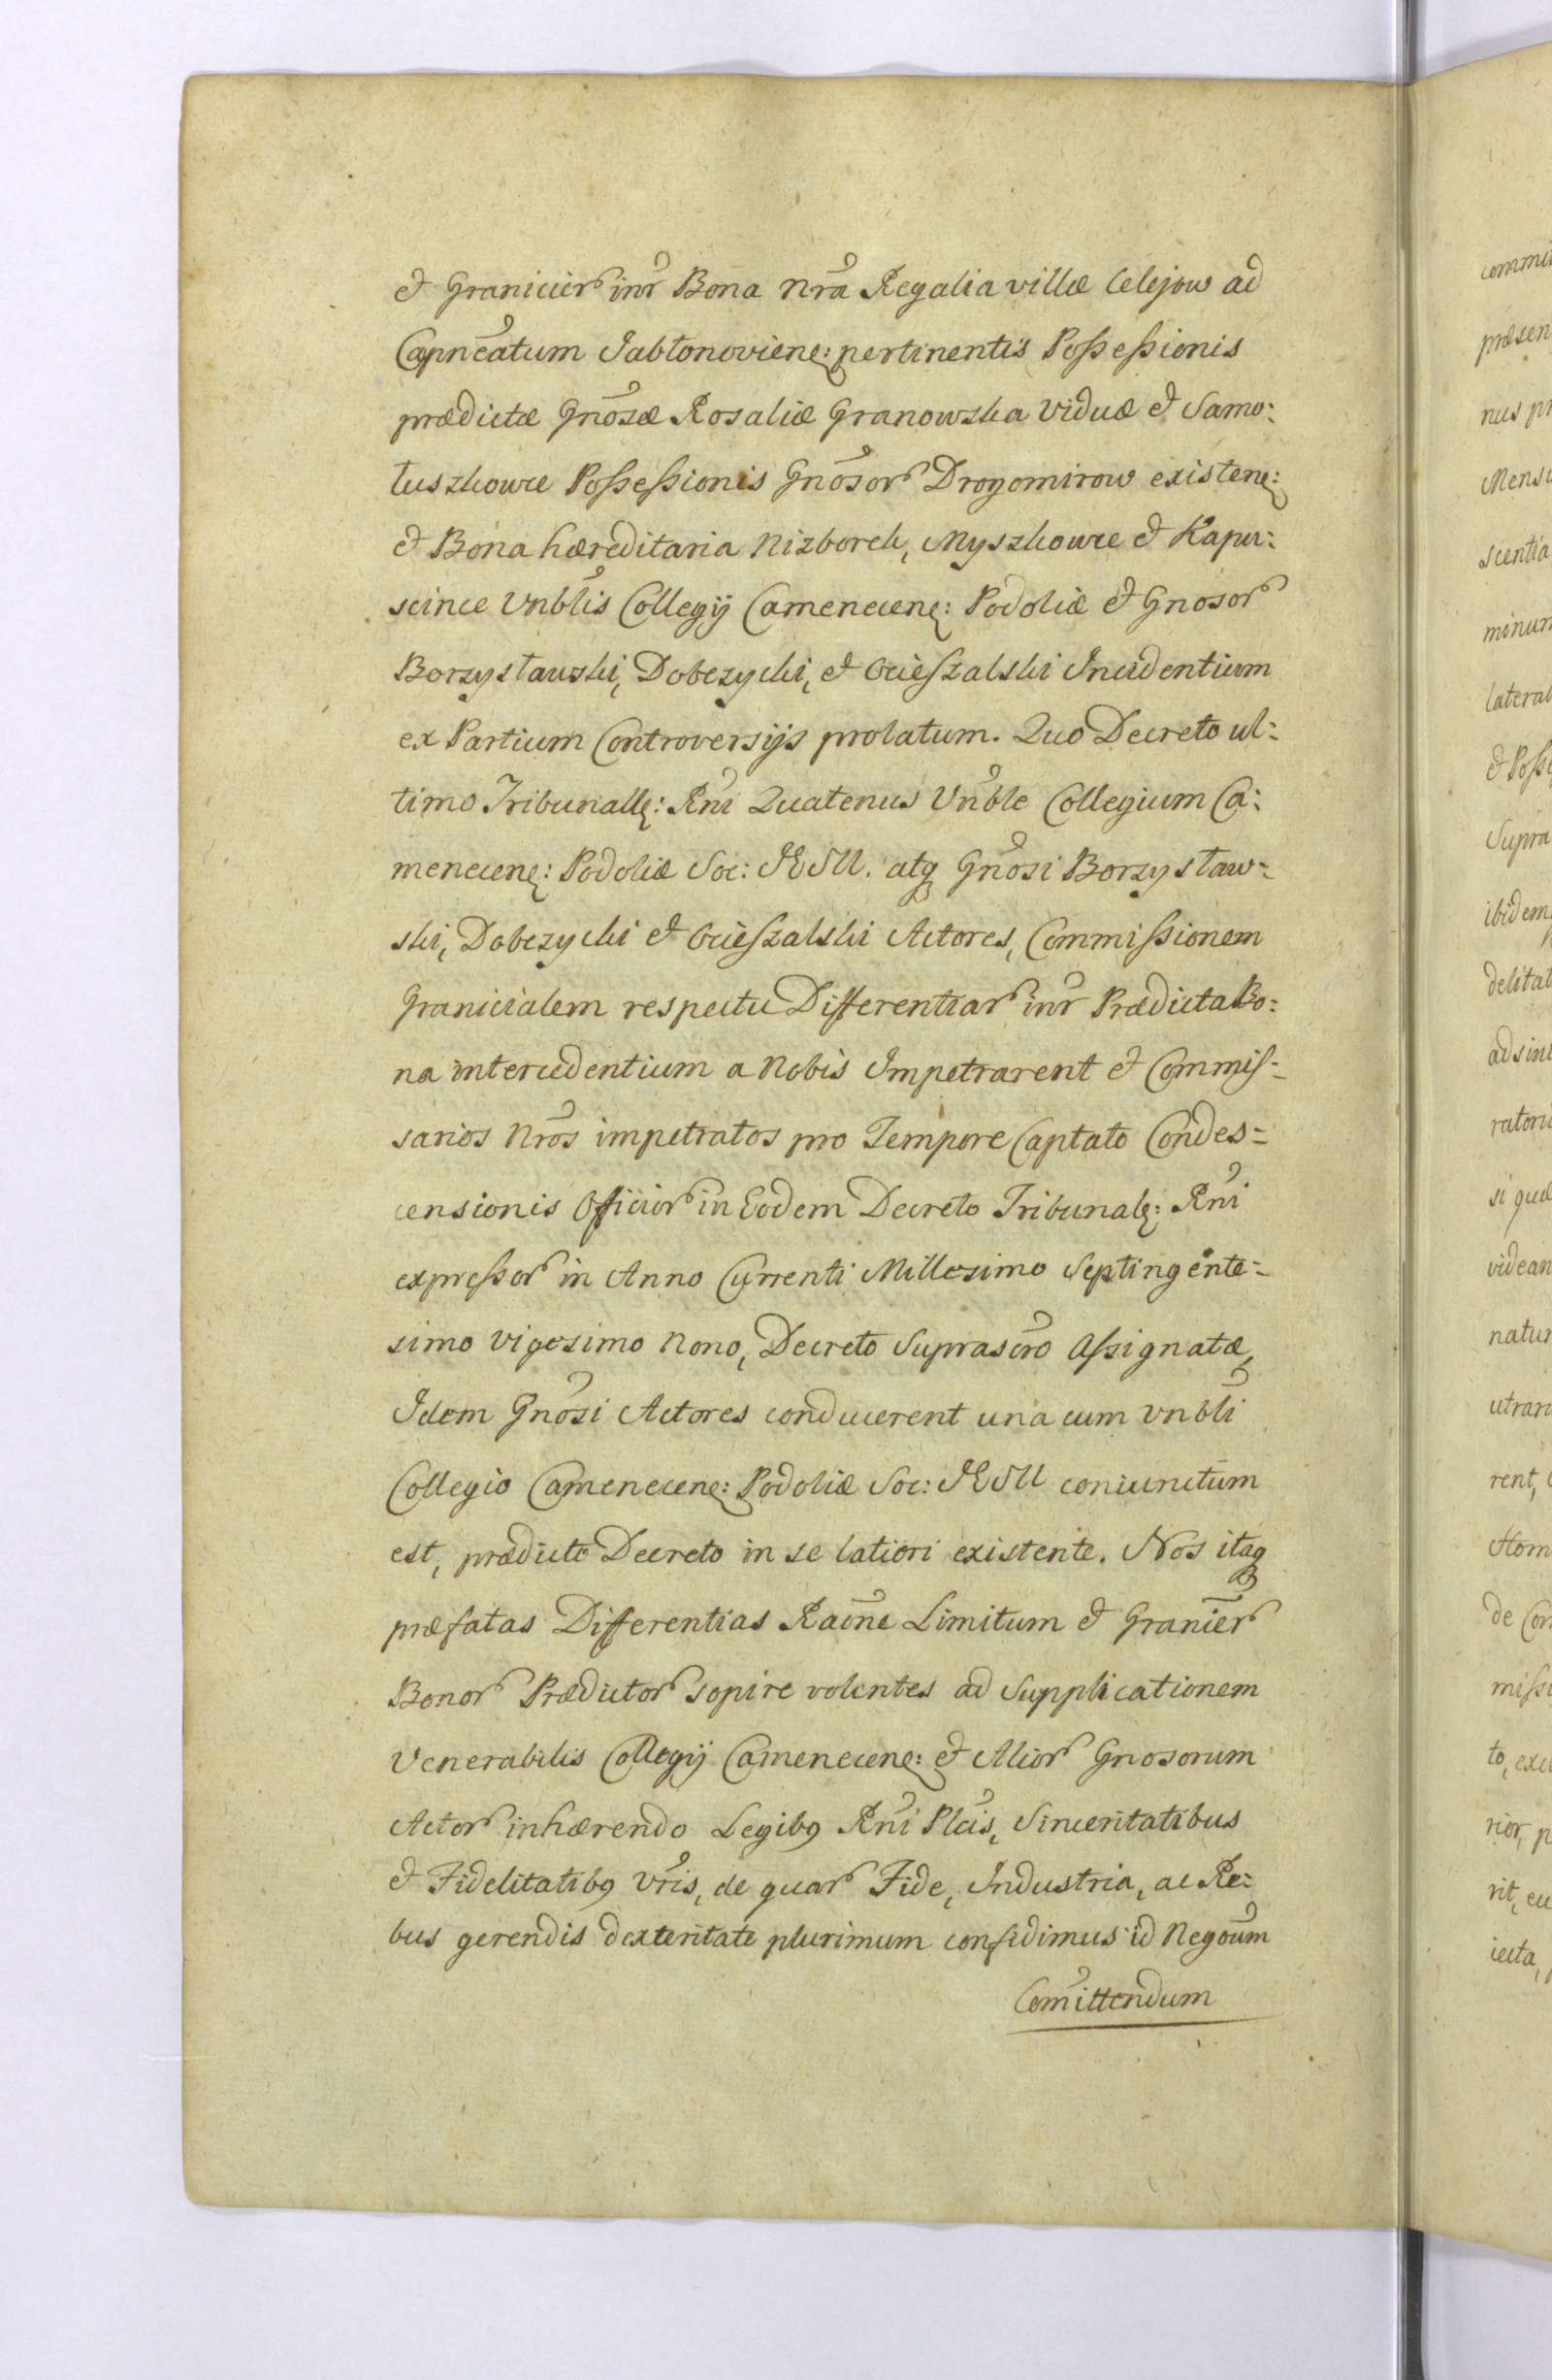 et Granicier inr Bona nra Regalia villæ Celejow ad
Capneatum Jabłonoviene: pertinentis Possessionis
prædictæ Gnosæ Rosaliæ Granowska Viduæ et Samo:
łuszkowce Possessionis Gnosor Drogomirow existene:
et Bona hæreditaria Nizborek, Myszkowce et Kapu:
scince Vnblis Collegij Camenecene: Podoliæ et Gnosor
Borzysławski, Dobczycki, et Ocieszalski Incidentium
ex Partium Controversijs prolatum. Quo Decreto ul:
timo Tribunalle: Rni Quatenus Vnble Collegium Ca:
menecene: Podoliæ Soc: JESU. atq Gnosi Borzysław:
ski, Dobczycki et Ocieszalski Actores, Commissionem
Granicialem respectu Differentiar inr Prædicta Bo:
na intercedentium a Nobis Impetrarent et Commis:
sarios Nros impetratos pro Tempore Captato Condes=
censionis Officior in Eodem Decreto Tribunale: Rni
expressor in Anno Currenti Millesimo Septingente=
simo vigesimo nono, Decreto Suprascro Assignatæ,
Idem Gnosi Actores conducerent una cum vnbli
Collegio Camenecene: Podoliæ Soc: JESU coniunctum
est, prædicto Decreto in se latiori existente. Nos itaq
præfatas Differentias Raõne Limitum et Granier
Bonor Prædictor sopire volentes ad Supplicationem
Venerabilis Collegij Camenecene: et Alior Gnosorum
Actor inhærendo Legibq Rni Plcis, Sinceritatibus
et Fidelitatibq Vris, de quar Fide, Industria, ac Re:
bus gerendis dexteritate plurimum confidimus id Negoum
Comittendum
commi
præsen
nus pr
Mensu
scentia
minum
lateral
et Posse
Supra
ibidem
delitat
ad sin
ratori
si quæ
videan
natur
utrar
rent,
Hom
de Con
missi
to, exe
rior, p
rit, eu
iecta,